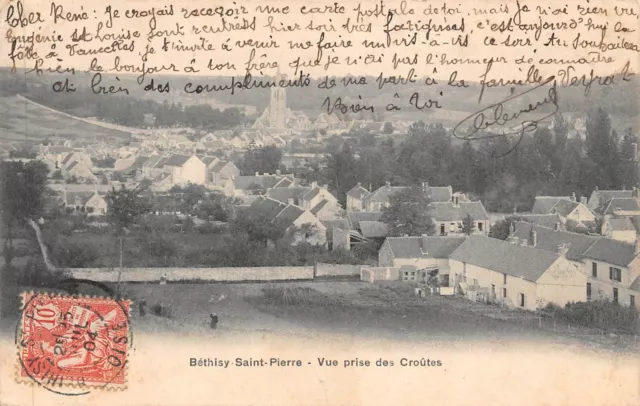 Cher René: je croyais recevoir une carte postale de toi, mais je n'ai rien vu
Eugénie et Louise sont rentrées hier soir très fatiguées, c'est aujourd'hui la
fête à Vaucelles, je t'invite à venir me faire vis-à-vis ce soir. Tu souhaiteras
bien le bonjour à ton frère que je n'ai pas l'honneur de connaître
et bien des compliments de ma part à la famille
Bien à toi
Béthisy-Saint-Pierre - Vue prise des Croûtes
10
OISE